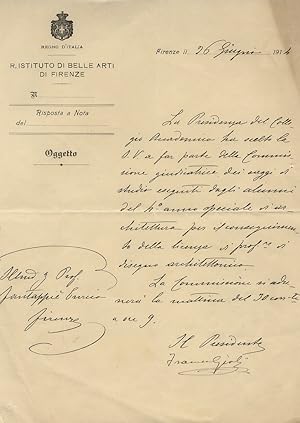 REGNO D'ITALIA
R. ISTITUTO DI BELLE ARTI
DI FIRENZE
N.
Risposta a Nota
del
Oggetto
Firenze li 26 Giugno 1914
La Presidenza del Colle
gio Accademico ha scelto la
S.V. a far parte della Commis
sione giudicatrice dei saggi di
studio eseguiti dagli alunni
del 4° anno speciale di ar
chitettura per il conseguimen
to della licenza di prof.re di
disegno architettonico.
La Commissione si adu
nerà la mattina del 30 corr.te
a ore 9.
Il Presidente
Francesco Gioli
Prof.
Enrico
Firenze